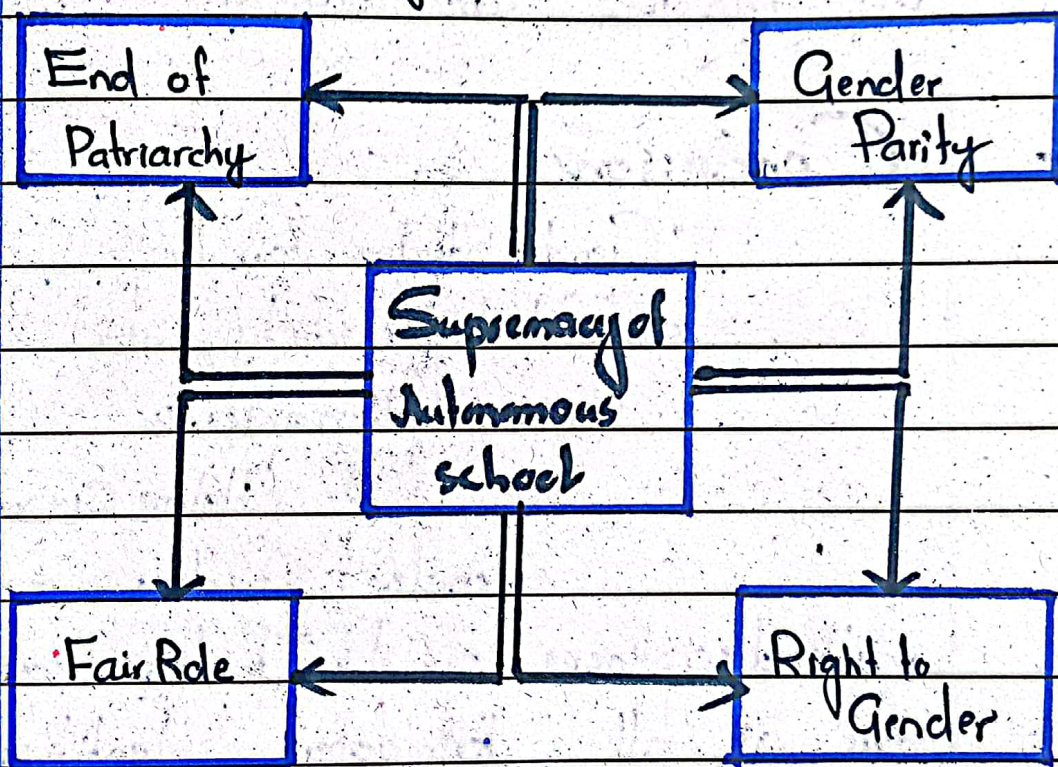 End of
Patriarchy
Gender
Parity
Supremacy of
Autonomous
school
Fair Role
Right to
Gender